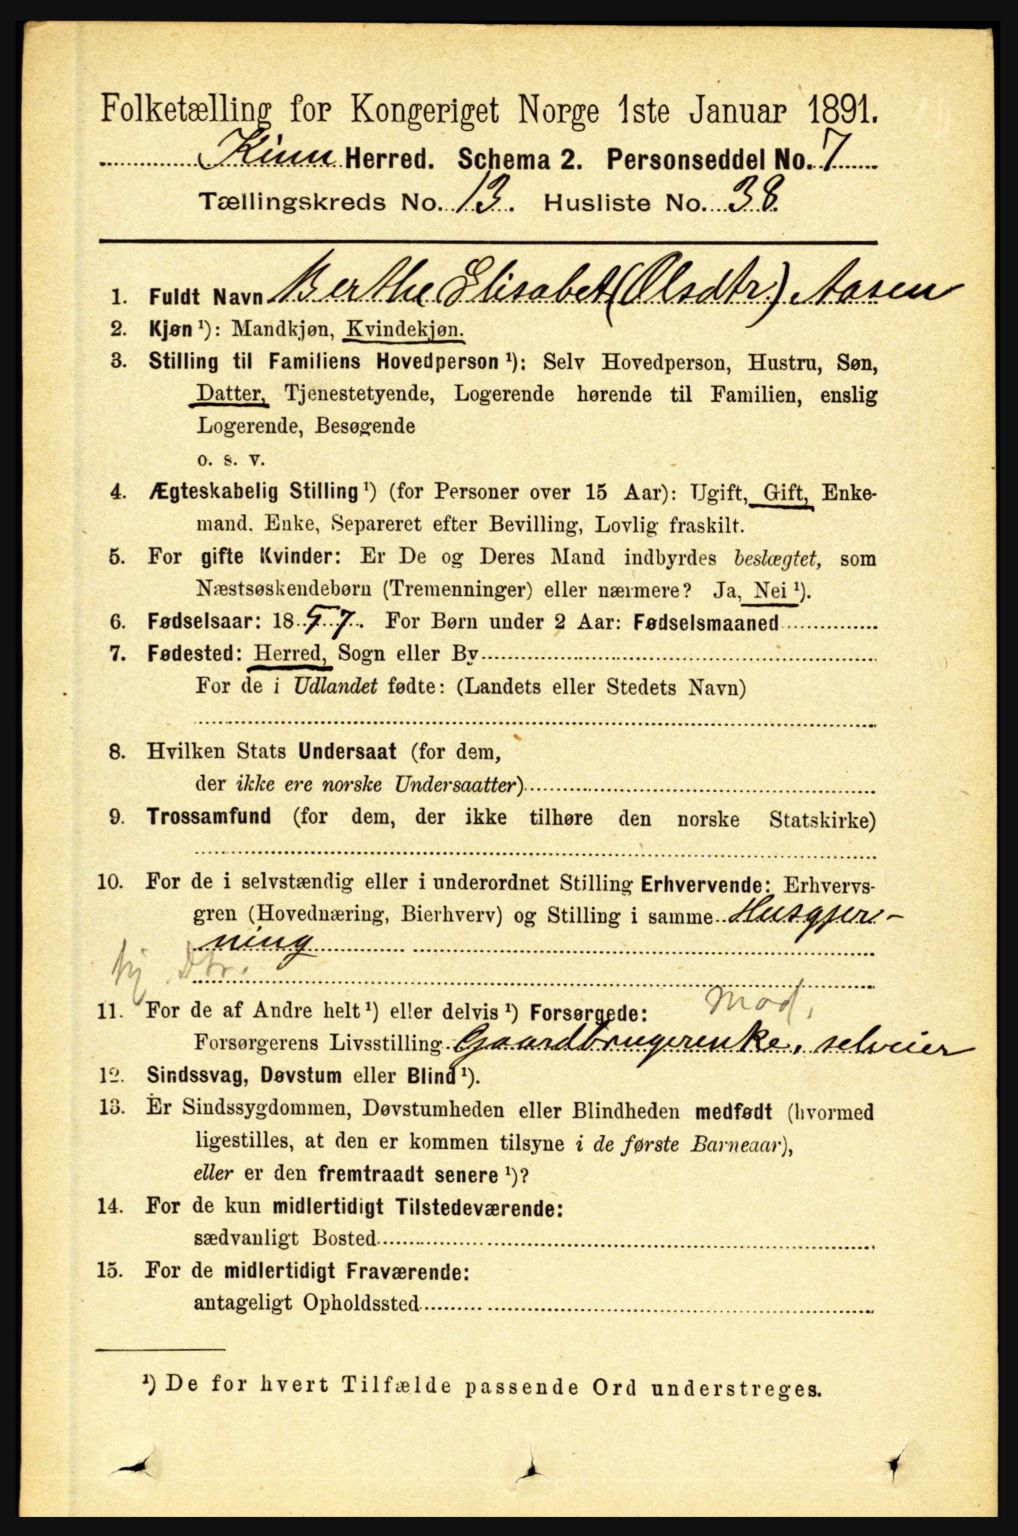 Folketælling for Kongeriget Norge 1ste Januar 1891.
Kinn Herred. Schema 2. Personseddel No. 7
Tællingskreds No. 13. Husliste No. 38.
1. Fuldt Navn Berthe Elisabet (Olsdtr.) Aasen
2. Kjøn ¹): Mandkjøn, Kvindekjøn.
3. Stilling til Familiens Hovedperson ¹): Selv Hovedperson, Hustru, Søn,
Datter, Tjenestetyende, Logerende hørende til Familien, enslig
Logerende, Besøgende
o. s. v.
4. Ægteskabelig Stilling ¹) (for Personer over 15 Aar): Ugift, Gift, Enke-
mand. Enke, Separeret efter Bevilling, Lovlig fraskilt.
5. For gifte Kvinder: Er De og Deres Mand indbyrdes beslægtet, som
Næstsøskendebørn (Tremenninger) eller nærmere? Ja, Nei ¹).
6. Fødselsaar: 1857. For Børn under 2 Aar: Fødselsmaaned
7. Fødested: Herred, Sogn eller By
For de i Udlandet fødte: (Landets eller Stedets Navn)
8. Hvilken Stats Undersaat (for dem,
der ikke ere norske Undersaatter)
9. Trossamfund (for dem, der ikke tilhøre den norske Statskirke)
10. For de i selvstændig eller i underordnet Stilling Erhvervende: Erhvervs-
gren (Hovednæring, Bierhverv) og Stilling i samme Husgjer-
ning
hj. Dtr.
11. For de af Andre helt ¹) eller delvis ¹) Forsørgede: Mod.
Forsørgerens Livsstilling Gaardbrugerenke, selveier
12. Sindssvag, Døvstum eller Blind ¹).
13. Er Sindssygdommen, Døvstumheden eller Blindheden medfødt (hvormed
ligestilles, at den er kommen tilsyne i de første Barneaar),
eller er den fremtraadt senere ¹)?
14. For de kun midlertidigt Tilstedeværende:
sædvanligt Bosted
15. For de midlertidigt Fraværende:
antageligt Opholdssted
¹) De for hvert Tilfælde passende Ord understreges.